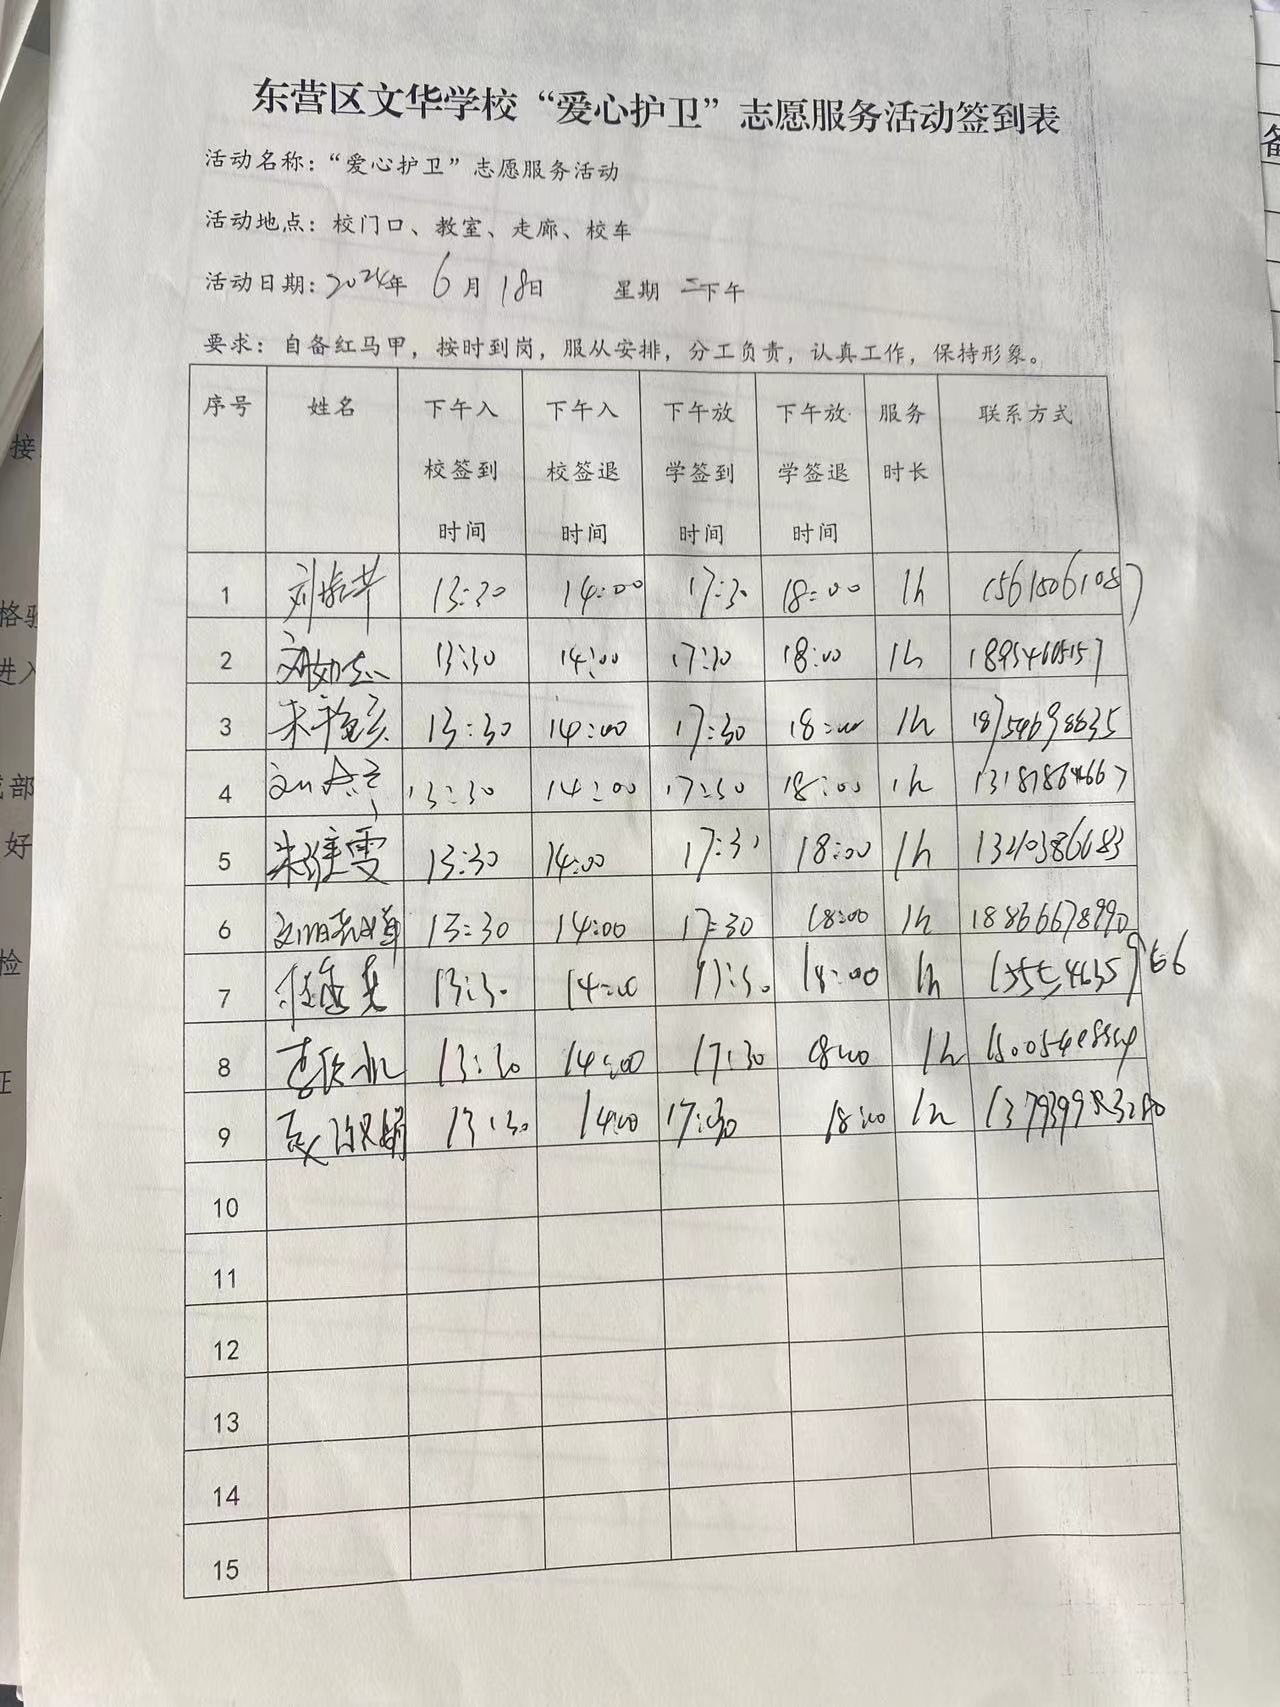 东营区文华学校“爱心护卫”志愿服务活动签到表
活动名称：“爱心护卫”志愿服务活动
活动地点：校门口、教室、走廊、校车
活动日期：2024年 6月18日 星期二下午
要求：自备红马甲，按时到岗，服从安排，分工负责，认真工作，保持形象。
序号 姓名 下午入校签到时间 下午入校签退时间 下午放学签到时间 下午放学签退时间 服务时长 联系方式
1 13:30 14:00 17:30 18:00 1h 15615061087
2 13:30 14:00 17:30 18:00 1h 18954605157
3 13:30 14:00 17:30 18:00 1h 18754698635
4 13:30 14:00 17:30 18:00 1h 13181864667
5 朱维雪 13:30 14:00 17:30 18:00 1h 13210386683
6 13:30 14:00 17:30 18:00 1h 18866678990
7 13:30 14:00 17:30 18:00 1h
8 13:30 14:00 17:30 18:00 1h
9 13:30 14:00 17:30 18:00 1h
10
11
12
13
14
15
接
格
进入
部
好
检
证
备